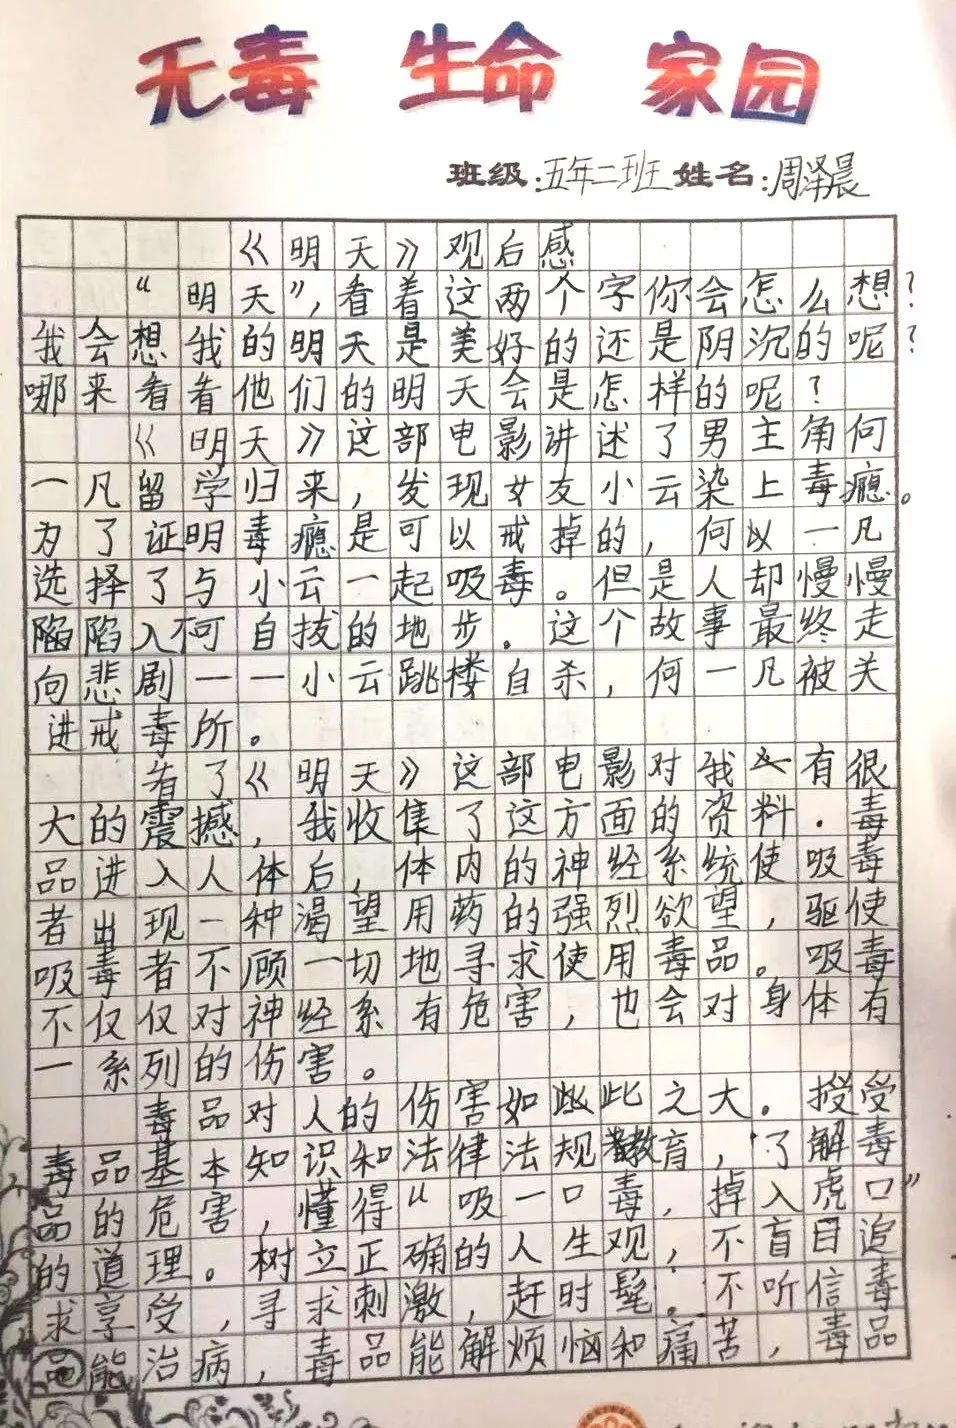 无毒 生命 家园
班级:五年二班 姓名:周泽晨
《明天》观后感
“明天”,看着这两个字你会怎么想?
我会想我的明天是美好的还是阴沉的呢?
哪来看看他们的明天会是怎样的呢?
《明天》这部电影讲述了男主角何
一凡留学归来,发现女友小云染上毒瘾。
为了证明毒瘾是可以戒掉的,何以一凡
选择了与小云一起吸毒。但是人却慢慢
陷陷入不可自拔的地步.这个故事最终走
向悲剧——小云跳楼自杀,何一凡被关
进戒毒所。
看了《明天》这部电影对我有很
大的震撼,我收集了这方面的资料.毒
品进入人体后,体内的神经系统使吸毒
者出现一种渴望用药的强烈欲望,驱使
吸毒者不顾一切地寻求使用毒品。吸毒
不仅仅对神经系有危害,也会对身体有
一系列的伤害。
毒品对人的伤害如此之大.授受
毒品基本知识和法律法规教育,了解毒
品的危害,懂得“吸一口毒,掉入虎口”
的道理。树立正确的人生观,不盲目追
求享受,寻求刺激,赶时髦。不听信毒
品能治病,毒品能解烦恼和痛苦,毒品